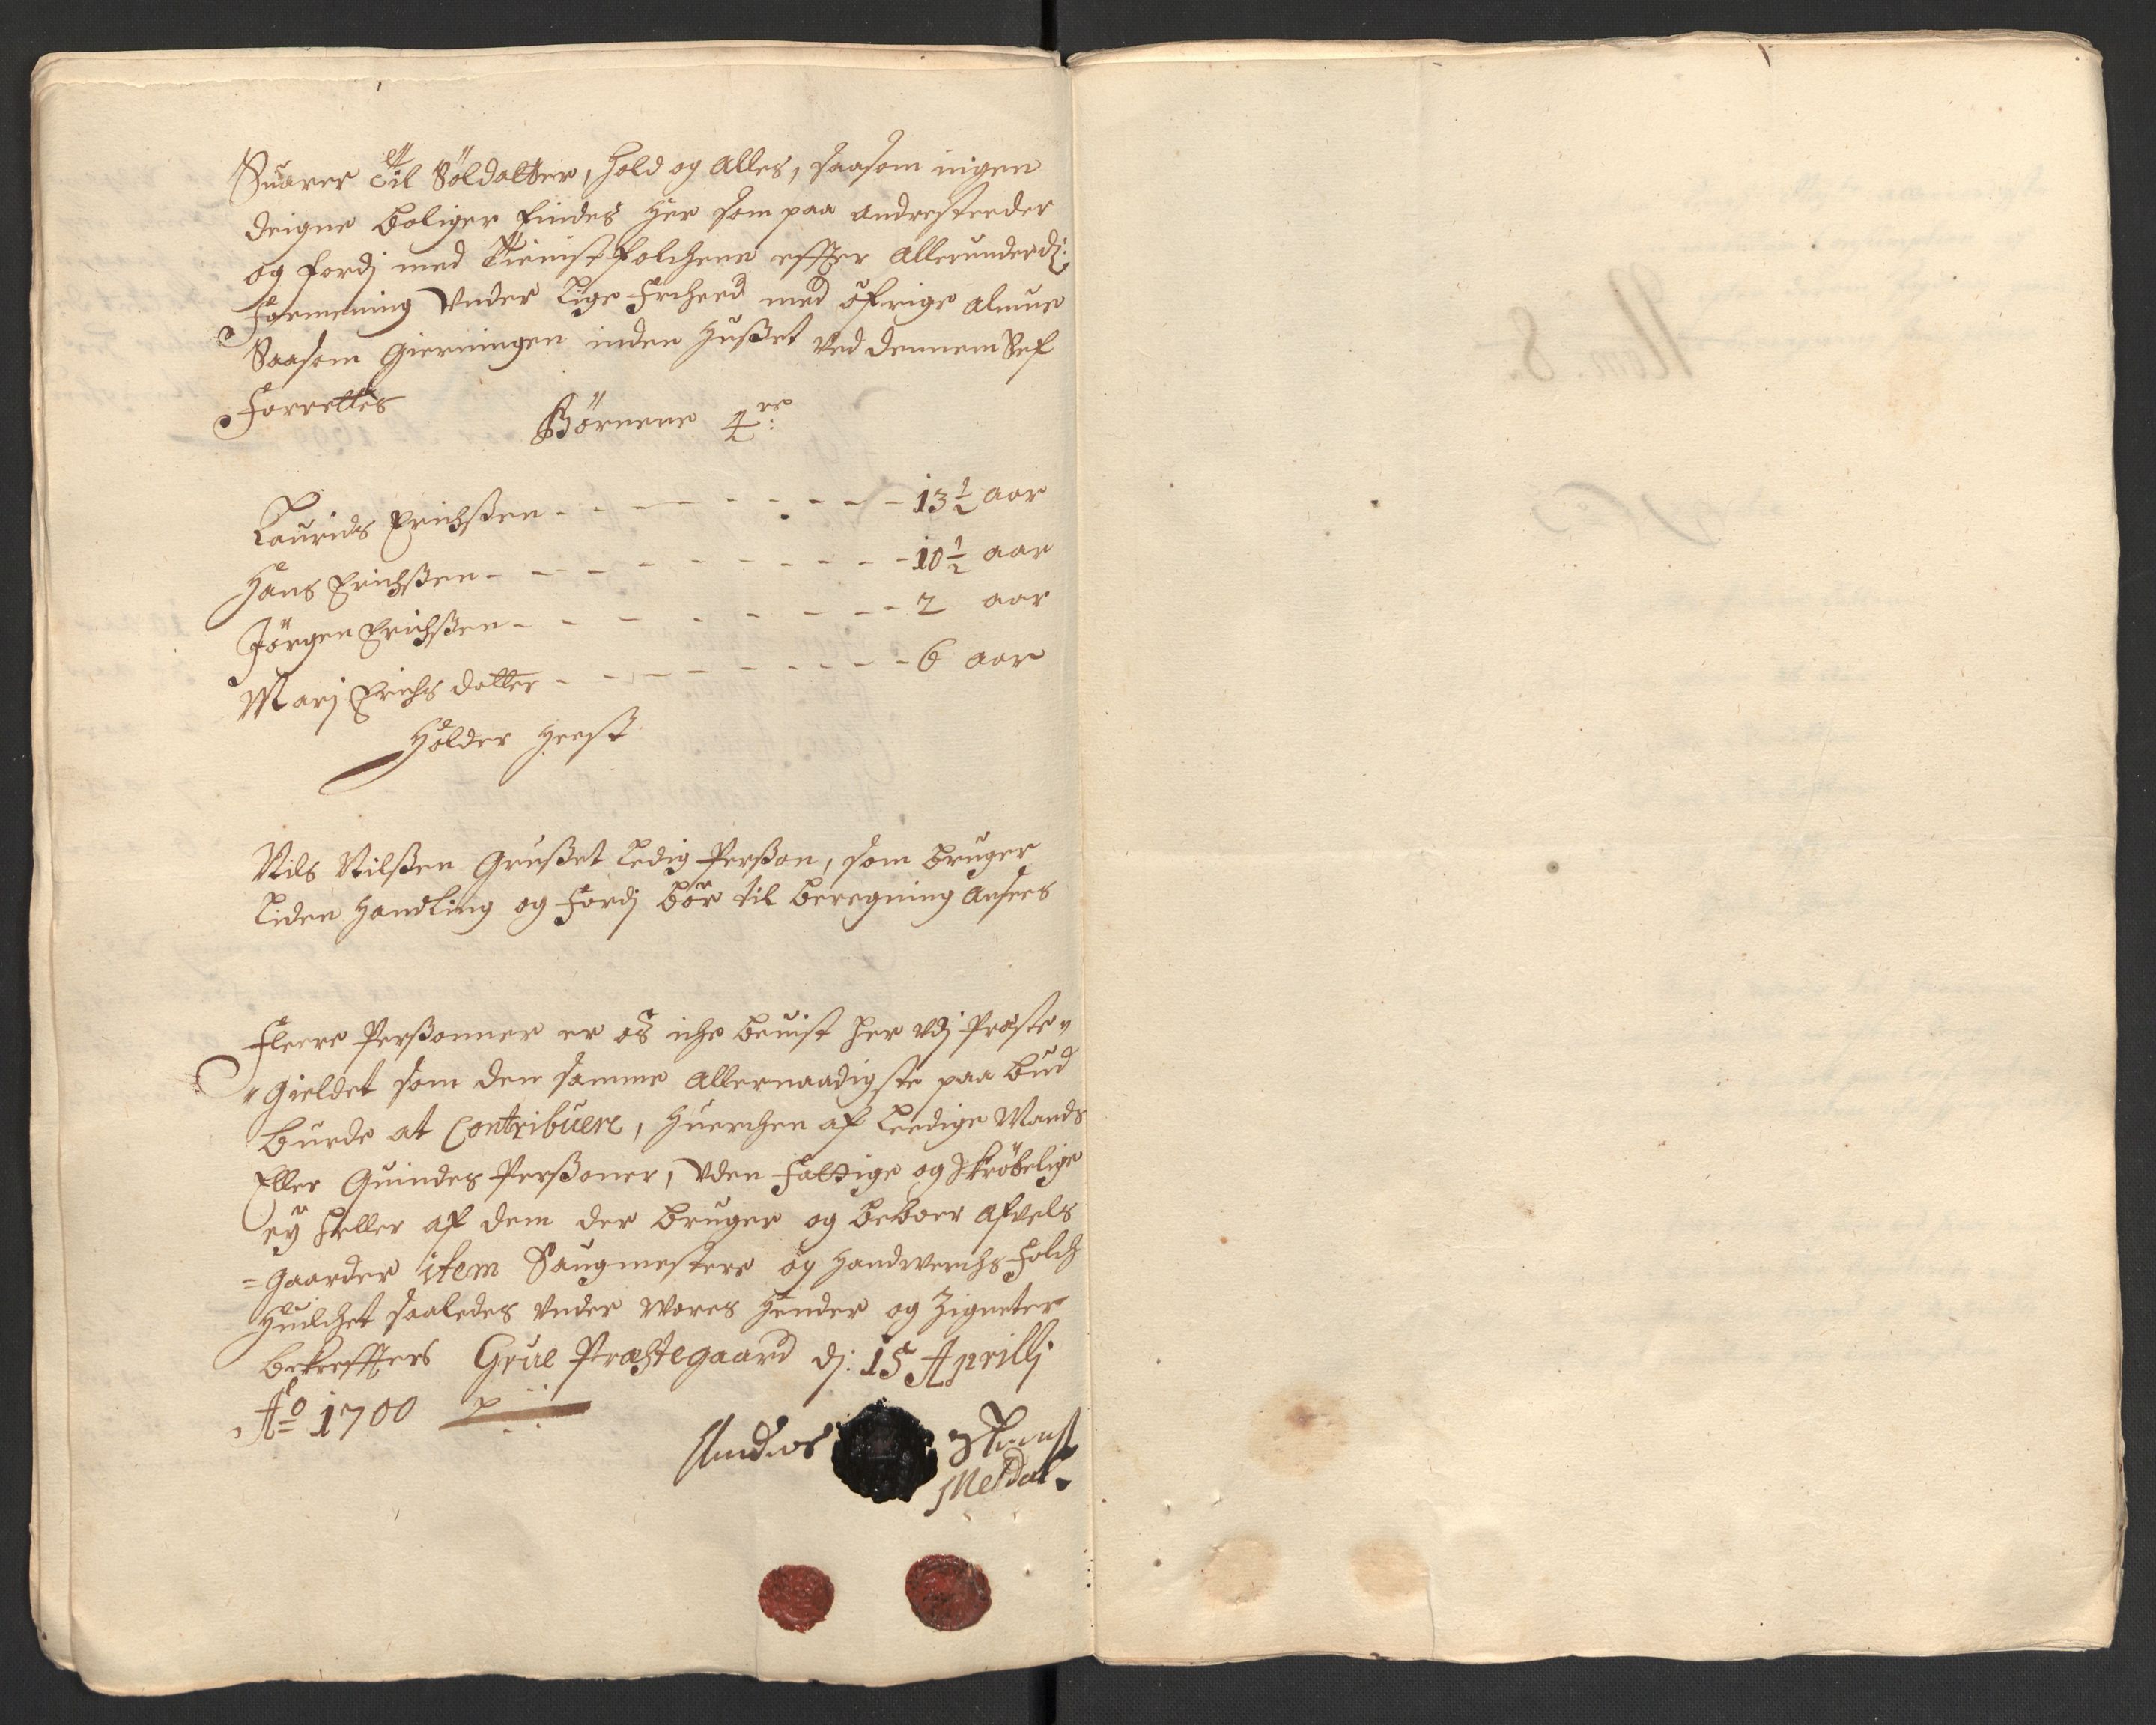 Suarer til Soldatter, Hold og Alles, saasom ingen
deigne Boliger findes her som paa andresteeder
og fordj med Tienistfolchene effter Allerunderd:
Formening Vnder Lige Friheed med öfrige Almue
Saasom Gierningen inden Husset ved dennem Self
Forrettes
Börnene 4re:
Laurids Erichssen - - - 13 1/2 aar
Hans Erichssen - - - 10 1/2 aar
Jörgen Erichssen - - - 2 aar
Marj Erichs datter - - - 6 aar
Holder Heest
Nils Nilssen Grusset Ledig Persson, som bruger
Liden Handling og fordj bör til beregning Ansees
Fleere Perssonner er os iche beuist her vdj Præste„
„gieldet som den samme Allernaadigste paa bud
burde at Contribuere, Huerchen af Leedige Mands
Eller Quindes Perssoner, vden fattige og Skröbelige
ey heller af dem der bruger og beboer Afvels
=gaarder item Saugmestere og Handwerchs Folch
Huilchet saaledes vnder vores Hender og Zigneter
bekreffters Grue Præstegaard dj: 15 Aprillj
Ao 1700
Meldal.
Nom. 8.